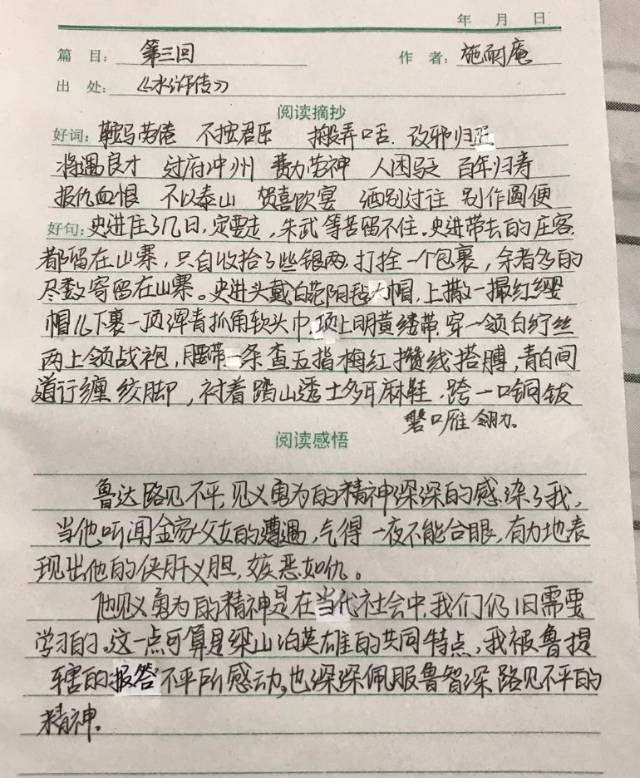 年 月 日
篇 目: 第三回 作 者: 施耐庵
出 处: 《水浒传》
阅读摘抄
好词: 鞍马劳倦 不拘君臣 搬弄口舌 改邪归正
将遇良才 过府冲州 费力劳神 人困马乏 百年归寿
报仇血恨 不以泰山 贺喜欢宴 洒别过往 别作圆便
好句: 史进住了几日,定要走,朱武等苦留不住。史进带去的庄客
都留在山寨,只自收拾了些银两,打拴一个包裹,余者多的
尽数寄留在山寨。史进头戴白范阳毡大帽,上撒一撮红缨
帽儿下裹一顶浑青抓角软头巾,项上明黄缕带,穿一领白纻丝
两上领战袍,腰带一条查五指梅红攒线搭膊,青白间
道行缠绞脚,衬着踏山透土多耳麻鞋,跨一口铜钹
磐口雁翎刀。
阅读感悟
鲁达路见不平,见义勇为的精神深深的感染了我,
当他听闻金家父女的遭遇,气得一夜不能合眼,有力地表
现出他的侠肝义胆,嫉恶如仇。
他见义勇为的精神是在当代社会中,我们仍旧需要
学习的。这一点可算是梁山泊英雄的共同特点,我被鲁提
辖的报答不平所感动,也深深佩服鲁智深路见不平的
精神。